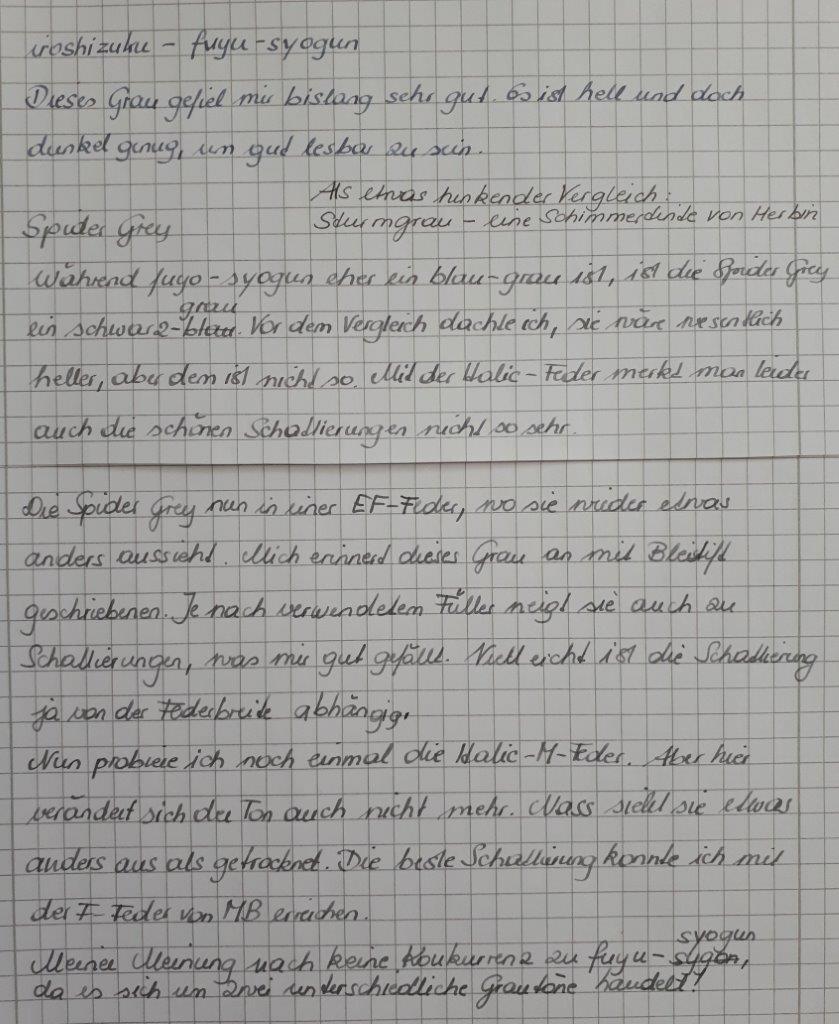 iroshizuku - fuyu-syogun
Dieses Grau gefiel mir bislang sehr gut. Es ist hell und doch
dunkel genug, um gut lesbar zu sein.
Als etwas hinkender Vergleich:
Sturmgrau - eine Schimmertinte von Herbin
Spider Grey
Während fuyo-syogun eher ein blau-grau ist, ist die Spider Grey
grau
ein schwarz-blau. Vor dem Vergleich dachte ich, sie wäre wesentlich
heller, aber dem ist nicht so. Mit der Italic-Feder merkt man leider
auch die schönen Schattierungen nicht so sehr.
Die Spider Grey nun in einer EF-Feder, wo sie wieder etwas
anders aussieht. Mich erinnert dieses Grau an mit Bleistift
geschriebenen. Je nach verwendetem Füller neigt sie auch zu
Schattierungen, was mir gut gefällt. Vielleicht ist die Schattierung
ja von der Federbreite abhängig.
Nun probiere ich noch einmal die Italic-M-Feder. Aber hier
verändert sich der Ton auch nicht mehr. Nass sieht sie etwas
anders aus als getrocknet. Die beste Schattierung konnte ich mit
der F-Feder von MB erreichen.
syogun
Meiner Meinung nach keine Konkurrenz zu fuyu-sygon,
da es sich um zwei unterschiedliche Grautöne handelt!